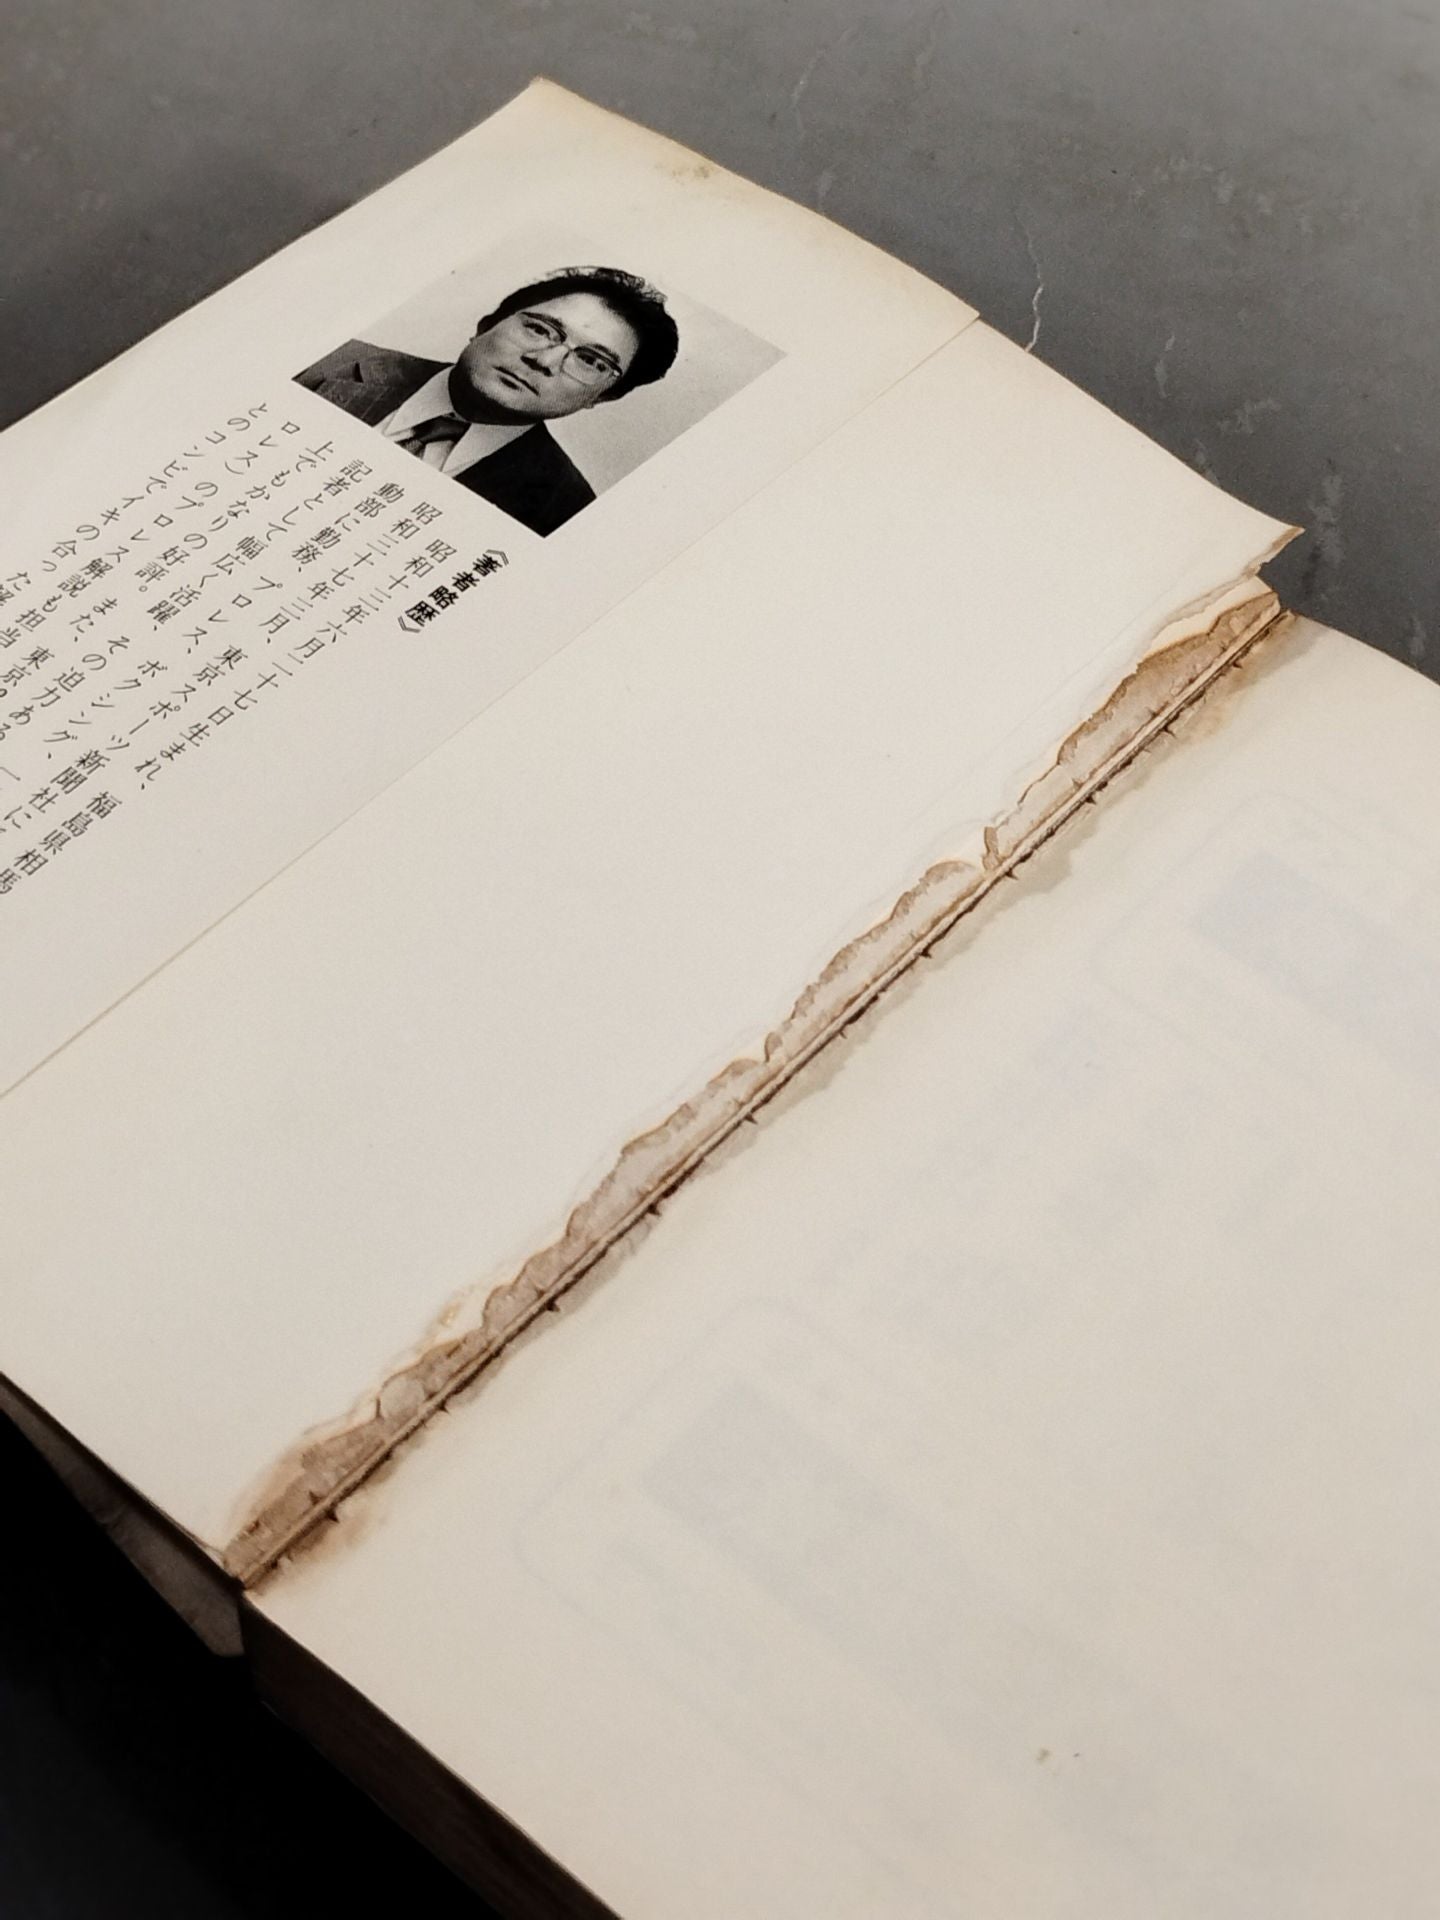 《著者略歴》
昭和十三年六月二十七日生まれ、福島県相馬
昭和三十七年三月、東京スポーツ新聞社に
動部に勤務、プロレス、ボクシング、一
記者として幅広く活躍、その迫力ある
上でもかなりの好評。また、東京
ロレス)のプロレス解説も担当。
とのコンビでイキの合った解